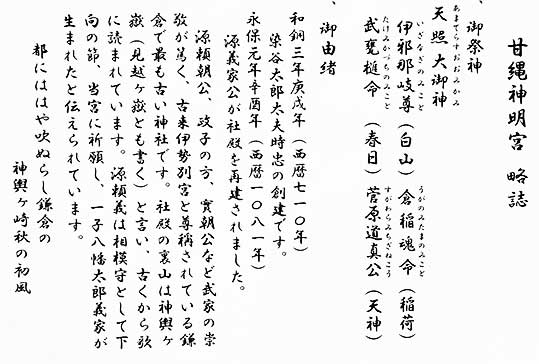 甘縄神明宮 略誌
、御祭神
あまてらすおおみかみ
天照大御神
いざなぎのみこと うがのみたまのみこと
伊邪那岐尊(白山) 倉稲魂命(稲荷)
たけみかづちのみこと すがわらみちざねこう
武甕槌命(春日) 菅原道真公(天神)
、御由緒
和銅三年庚戌年(西暦七一〇年)
染谷太郎太夫時忠の創建です。
永保元年辛酉年(西暦一〇八一年)
源義家公が社殿を再建されました。
源頼朝公、政子の方、實朝公など武家の崇
敬が篤く、古来伊勢別宮と尊称されている鎌
倉で最も古い神社です。社殿の裏山は神輿ヶ
嶽(見越ヶ嶽とも書く)と言い、古くから歌
に読まれています。源頼義は相模守として下
向の節、当宮に祈願し、一子八幡太郎義家が
生まれたと伝えられています。
都にははや吹ぬらし鎌倉の
神輿ヶ崎秋の初風